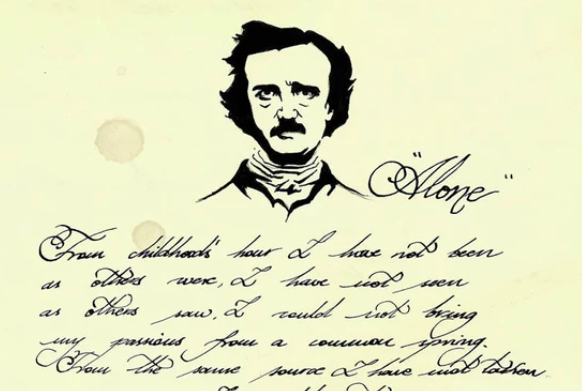 "Alone"
From childhood's hour I have not been
as others were, I have not seen
as others saw, I could not bring
my passions from a common spring.
From the same source I have not taken